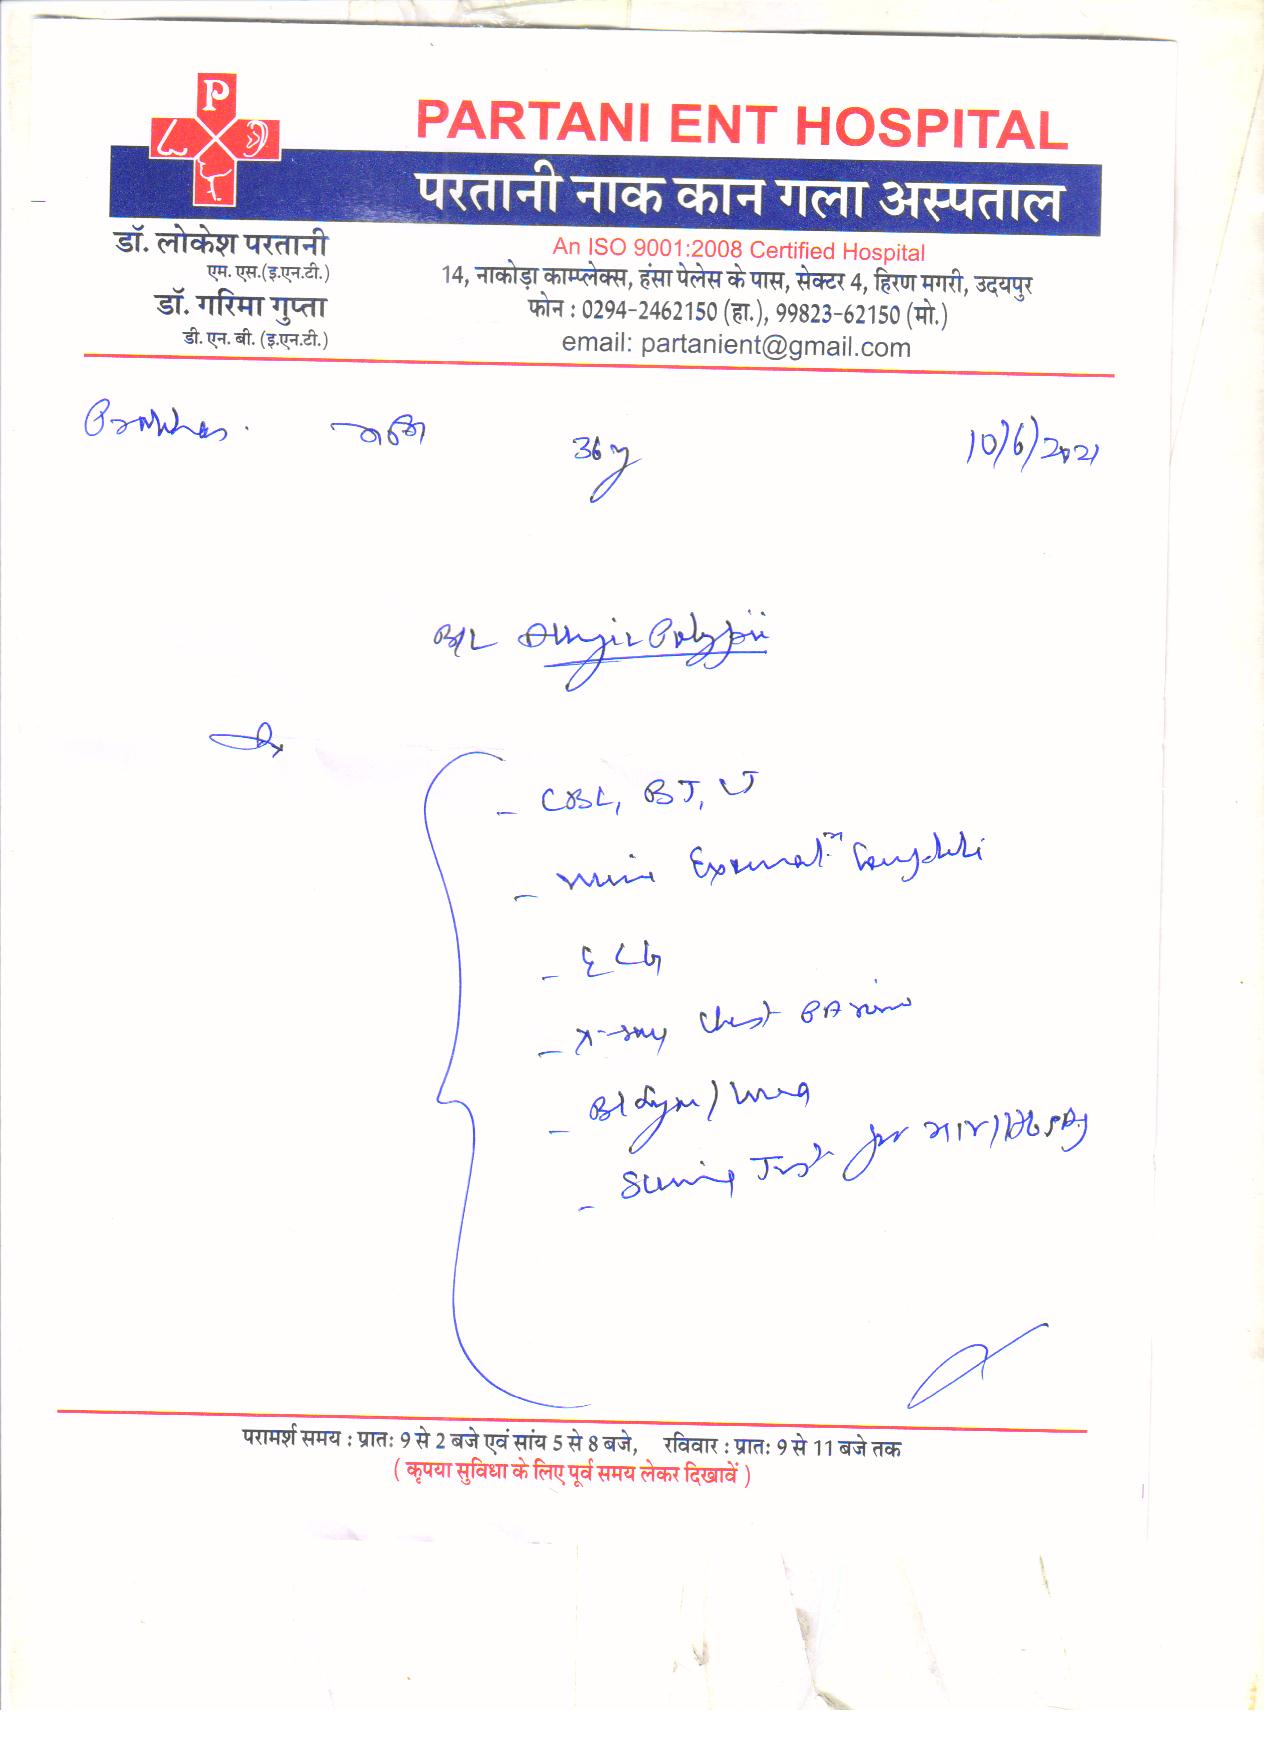 P
PARTANI ENT HOSPITAL
परतानी नाक कान गला अस्पताल
डॉ. लोकेश परतानी
एम. एस.(इ.एन.टी.)
डॉ. गरिमा गुप्ता
डी. एन. बी. (इ.एन.टी.)
An ISO 9001:2008 Certified Hospital
14, नाकोड़ा काम्प्लेक्स, हंसा पेलेस के पास, सेक्टर 4, हिरण मगरी, उदयपुर
फोन : 0294-2462150 (हा.), 99823-62150 (मो.)
email: partanient@gmail.com
36y 10/6/2021
B/L Allergic Polypii
- CBC, BT, CT
- Urine Examinatn Complete
- ECG
- X-ray Chest PA view
- Bl Sugar / Urea
- Screening Test for HIV/HbsAg
परामर्श समय : प्रातः 9 से 2 बजे एवं सांय 5 से 8 बजे, रविवार : प्रातः 9 से 11 बजे तक
( कृपया सुविधा के लिए पूर्व समय लेकर दिखावें )